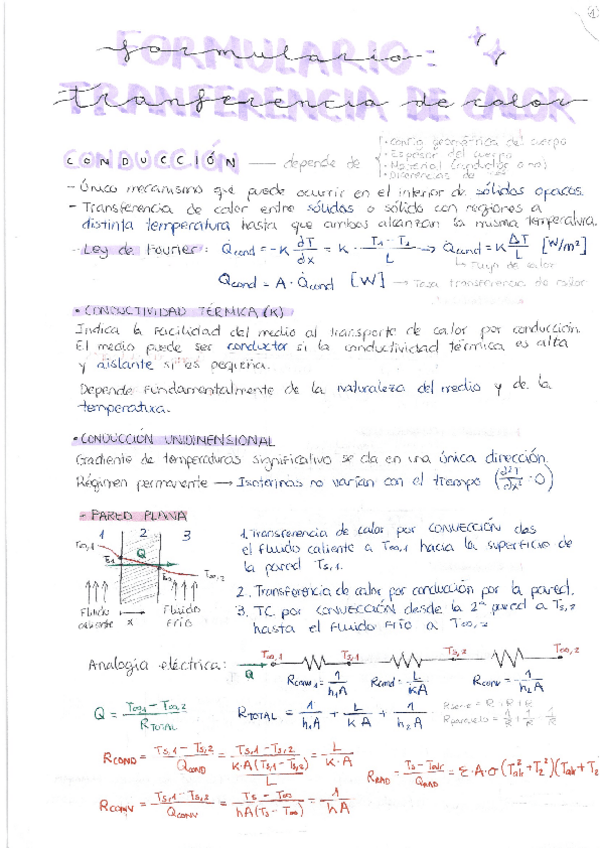 1
FORMULARIO:
formulario
TRANFERENCIA DE CALOR
CONDUCCIÓN — depende de
· Config geométrica del cuerpo
· Espesor del cuerpo
· Material (conductor o no)
· Diferencias de
- Único mecanismo que puede ocurrir en el interior de sólidos opacos.
- Transferencia de calor entre sólidos o sólido con regiones a
distinta temperatura hasta que ambos alcanzan la misma temperatura.
Ley de Fourier: Q̇cond = -K dT/dx = K · T₁-T₂/L → Q̇cond = K ΔT/L [W/m²]
↳ Flujo de calor
Qcond = A · Q̇cond [W] → Tasa transferencia de calor
• CONDUCTIVIDAD TÉRMICA (K)
Indica la facilidad del medio al transporte de calor por conducción.
El medio puede ser conductor si la conductividad térmica es alta
y aislante si es pequeña.
Depende fundamentalmente de la naturaleza del medio y de la
temperatura.
• CONDUCCIÓN UNIDIMENSIONAL
Gradiente de temperaturas significativo se da en una única dirección.
Régimen permanente → Isotermas no varían con el tiempo
- PARED PLANA
1 2 3
T∞,1
Q
T∞,2
Fluido caliente
x
Fluido Frío
1. Transferencia de calor por CONVECCIÓN des
el fluido caliente a T∞,1 hacia la superficie de
la pared Ts,1.
2. Transferencia de calor por conducción por la pared.
3. TC por CONVECCIÓN desde la 2ª pared a Ts,2
hasta el Fluido Frío a T∞,2
Analogía eléctrica:
Q
T∞,1 Ts,1 Ts,2 T∞,2
Rconv 1 = 1/h₁A Rcond = L/KA Rconv = 1/h₂A
Q = T∞1 - T∞2 / RTOTAL
RTOTAL = 1/h₁A + L/KA + 1/h₂A
RCOND = Ts,1 - Ts,2 / Qcond = Ts,1 - Ts,2 / (K·A(Ts,1 - Ts,2)/L) = L/K·A
RCONV = Ts,1 - Ts,2 / QCONV = Ts - T∞ / hA(Ts - T∞) = 1/hA